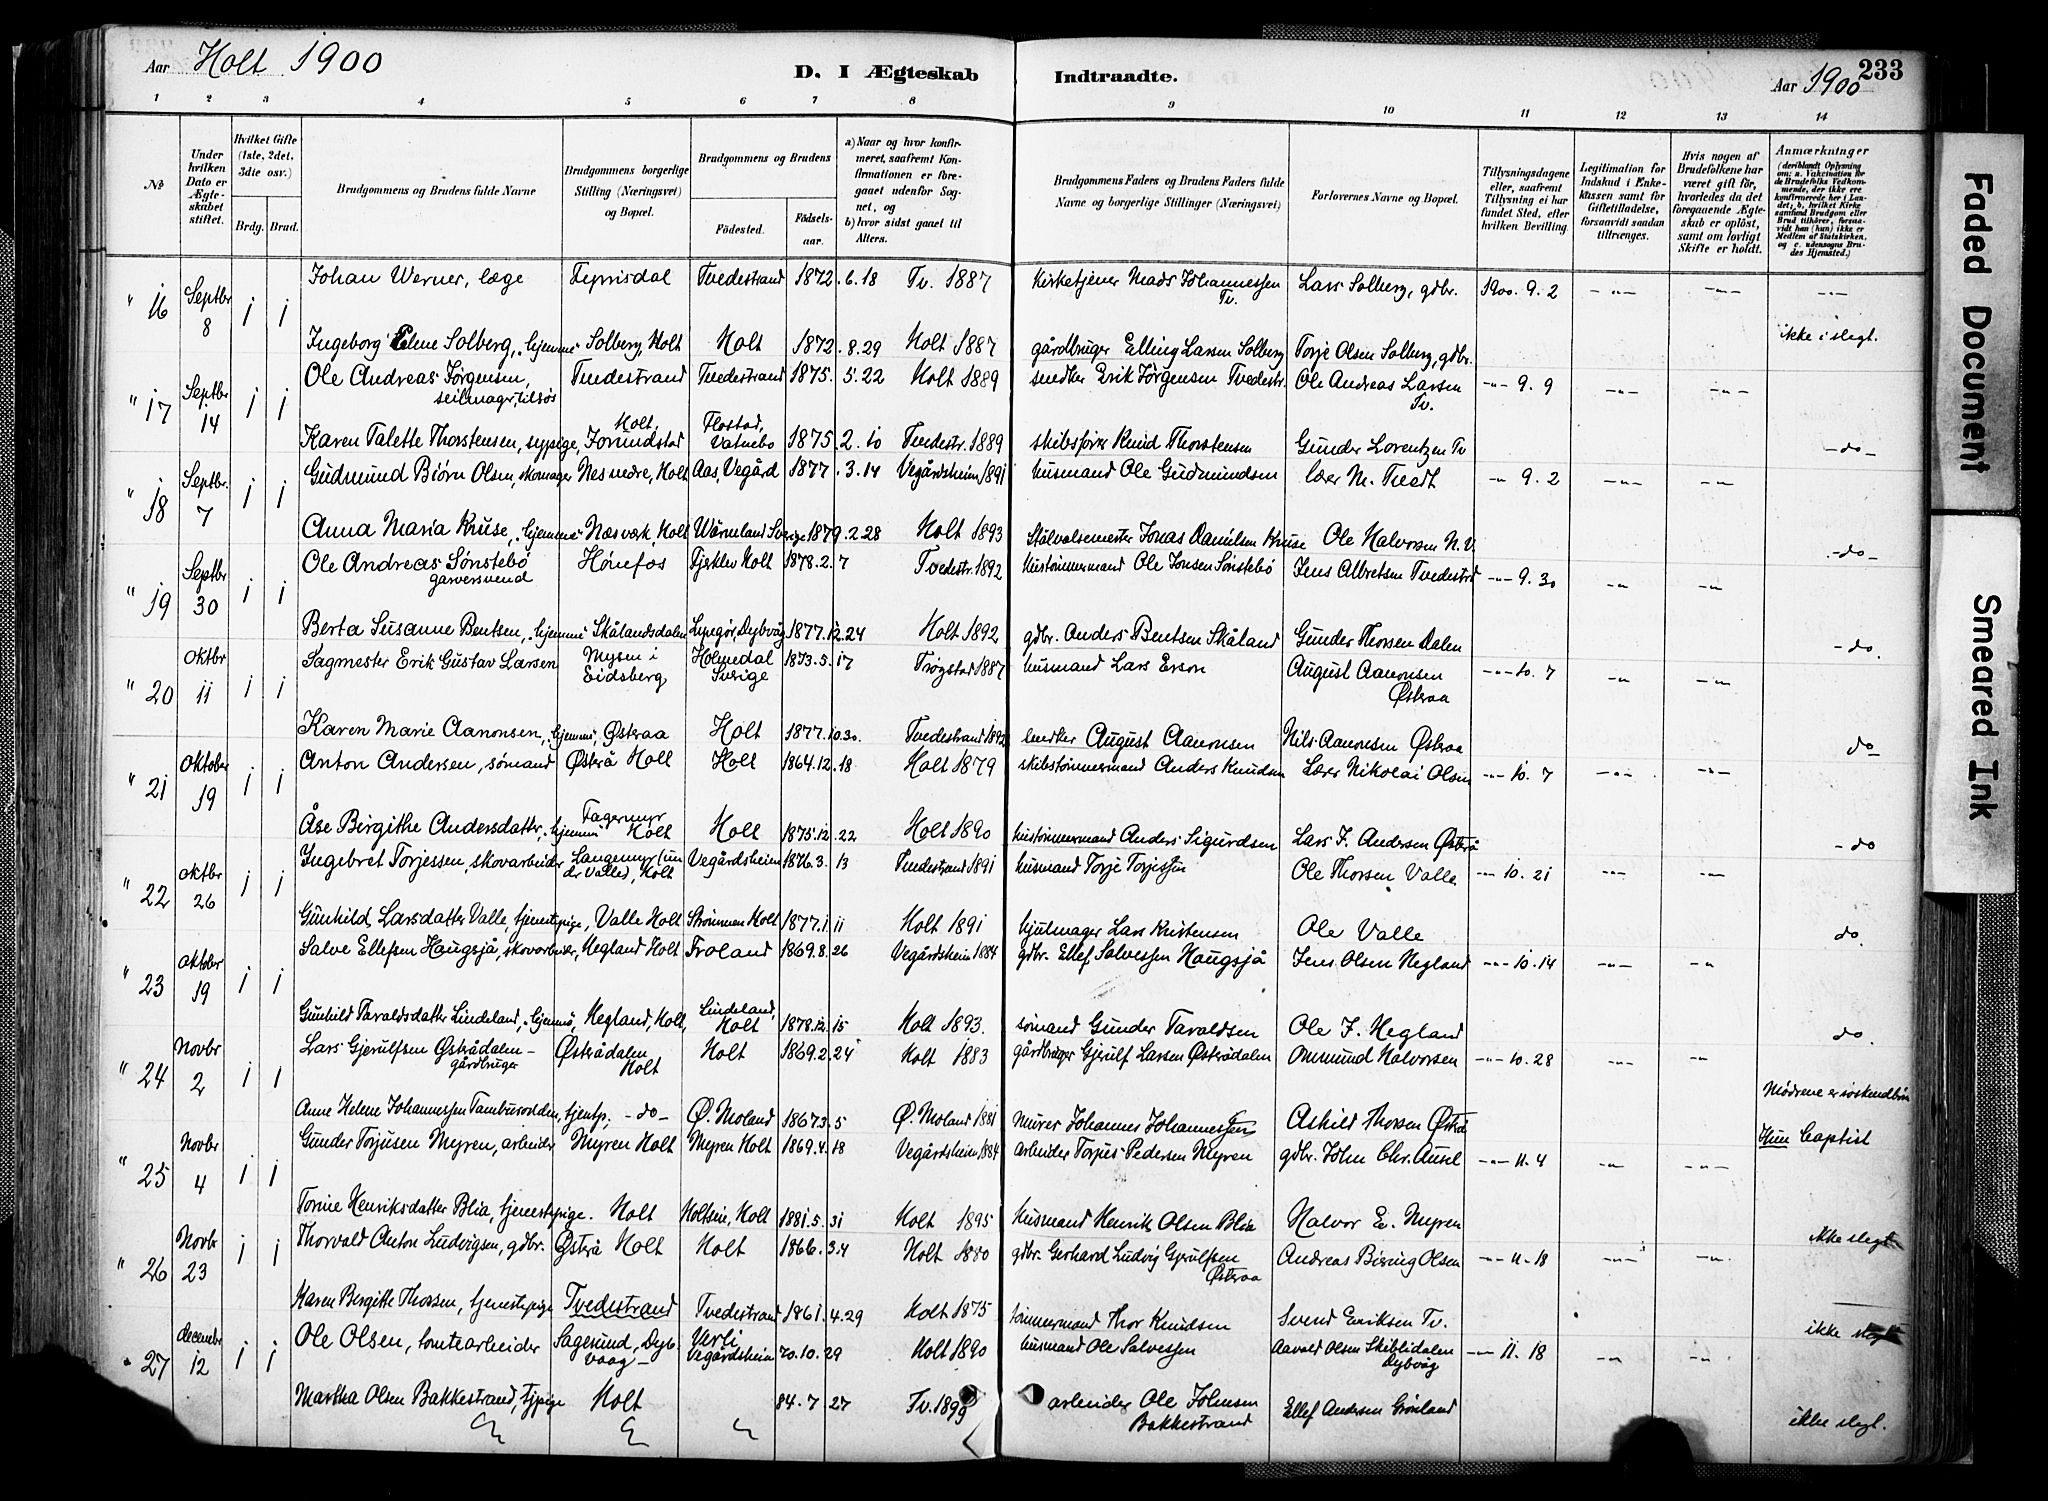 Aar Holt 1900
D. I Ægteskab Indtraadte.
Aar 1900 233
1 2 3 4 5 6 7 8 9 10 11 12 13 14
№
Under hvilken Dato er Ægteskabet stiftet.
Hvilket Gifte (1ste, 2det, 3die osv.)
Brdg. Brud.
Brudgommens og Brudens fulde Navne
Brudgommens borgerlige Stilling (Næringsvei) og Bopæl.
Brudgommens og Brudens
Fødested. Fødselsaar.
a) Naar og hvor konfirmeret, saafremt Konfirmationen er foregaaet udenfor Sognet, og
b) hvor sidst gaaet til Alters.
Brudgommens Faders og Brudens Faders fulde Navne og borgerlige Stillinger (Næringsvei)
Forlovernes Navne og Bopæl.
Tillysningsdagene eller, saafremt Tillysning ei har fundet Sted, efter hvilken Bevilling.
Legitimation for Indskud i Enkekassen samt for Giftetilladelse, forsaavidt saadan tiltrænges.
Hvis nogen af Brudefolkene har været gift før, hvorledes da det foregaaende Ægteskab er opløst, samt om lovligt Skifte er holdt.
Anmærkninger
(deriblandt Oplysning om: a. Vakcination for de Brudefolks Vedkommende, der ikke ere konfirmerede her i Landet; b. hvilket Kirkesamfund Brudgom eller Brud tilhører, forsaavidt han (hun) ikke er Medlem af Statskirken, og c. udensogns Brudes Hjemsted.)
" 16 Septbr 8 1 1 Johan Werner, læge Tvedestrand 1872.6.18 Tv. 1887 Kirketjener Mads Johannessen Tv. Lars Solberg, gdbr. 1900. 9. 2 -"- -"- -"-
Ingeborg Elene Solberg, "hjemme" Solberg, Holt Holt 1872.8.29 Holt 1887 gårdbruger Elling Larsen Solberg Torje Olsen Solberg, gdbr. ikke i slegt.
" 17 Septbr. 14 1 1 Ole Andreas Jørgensen, seilmager, tilsøs Tvedestrand Tvedestrand 1875.5.22 Holt 1889 snedker Erik Jørgensen Tvedestr. Ole Andreas Larsen Tv. -"- 9. 9 -"- -"-
Karen Talette Thorstensen, sypige, Holt, Flostad, Vatnebo 1875.2.10 Tvedestr. 1889 skibsfører Knud Thorstensen Gunder Lorentzen Tv -do-
" 18 Septbr. 7 1 1 Gudmund Biørn Olsen, skomager Nes nedre, Holt Aas, Vegård 1877.3.14 Vegårdsheim 1891 husmand Ole Gudmundsen lær M. Tvedt -" 9. 2 -"- -"-
Anna Maria Kruse, "hjemme" Næsværk, Holt Wärmland Sverige 1879.2.28 Holt 1893 Stålvalsemester Jonas Danielsen Kruse Ole Halvorsen N.V. -do-
" 19 Septbr 30 1 1 Ole Andreas Sønstebø garversvend Hønefos Fjeklev Holt 1878.2.7 Tvedestr. 1892 hustømmermand Ole Jonsen Sønstebø Jens Albretsen Tvedestrd -"- 9. 30 -" -"-
Berta Susanne Bentsen, "hjemme" Skålandsdalen Lyngør, Dybvåg 1877.12.24 Holt 1892 gdbr. Anders Bentsen Skåland Gunder Thorsen Dalen -do.
" 20 Oktbr 11 1 1 Sagmester Erik Gustav Larsen Mysen i Eidsberg Holmedal Sverige 1873.5.17 Trøgstad 1887 husmand Lars Erson August Aanonsen Østeraa -"- 10. 7 -" -"-
Karen Marie Aanonsen, "hjemme", Østeraa Holt 1877.10.30. Tvedestrand 1892 snedker August Aanonsen Nils Aanonsen Østeraa do-
" 21 Oktober 19 1 1 Anton Andersen, sømand Østrå Holt Holt 1864.12.18 Holt 1879 skibstømmermand Anders Knudsen Lærer Nikolai Olsen -"- 10. 7 -"- -"-
Åse Birgithe Andersdatter, "hjemme" Fagermyr Holt Holt 1875.12.22 Holt 1890 hustømmermand Anders Sigurdsen Lars J. Andersen Østrå -do
" 22 Oktbr 26 1 1 Ingebret Torjessen, skovarbeider Langemyr (under Valle), Holt Vegårdsheim 1876.3.13 Tvedestrand 1891 husmand Torje Torjessen Ole Thorsen Valle -"- 10. 21 -"- -"-
Günhild Larsdatter Valle, tjenestepige, Valle Holt Strømmen Holt 1877.1.11 Holt 1891 hjulmager Lars Kristensen Ole Valle do.
" 23 Oktober 19 1 1 Salve Ellefsen Haugsjå, skovarbeider, Hegland Holt Froland 1869.8.26 Vegårdsheim 1884 gdbr. Ellef Salvessen Haugsjå Jens Olsen Hegland -"- 10. 14 -"- -"
Günhild Taraldsdatter Lindeland, "hjemme", Hegland, Holt, Lindeland, Holt 1878.12.15 Holt 1893. sømand Gunder Taraldsen Ole J. Hegland do.
" 24 Novbr 2 1 1 Lars Gjerulfsen Østrådalen - gårdbruger Østrådalen Holt Holt 1869.2.24 Holt 1883 gårdbruger Gjerulf Larsen Østerådalen Omund Halvorsen -"- 10. 28 -"- -"
Anne Helene Johannessen Tambursodden, tjentp. -do- Ø. Moland 1867.3.5 Ø. Moland 1881 murer Johannes Johannessen Askild Thorsen Østrå Mødrene er søskendbørn
" 25 Novbr 4 1 1 Gunder Torjusen Myren, arbeider Myren Holt Myren Holt 1869.4.18 Vegårdsheim, 1884 arbeider Torjus Pedersen Myren gdbr. John Chr. Ausel -"- 11. 4 -" -"- Hun baptist
Torine Henriksdatter Blia, tjenestepige. Holt Holtseie, Holt 1881.5.31 Holt 1895 husmand Henrik Olsen Blia Halvor E. Myren ikke slegt
" 26 Novbr 23 1 1 Thorvald Anton Ludvigsen, gdbr. Østrå Holt Holt 1866.3.4 Holt 1880 gdbr. Gerhard Ludvig Gjerulfsen Østeraa Andreas Bisring Olsen -"- 11. 18 -"- -"-
Karen Birgitte Thorsen, tjenestepige Tvedestrand Tvedestrand 1861.4.29 Holt 1875 tømmermand Thor Knudsen Svend Eriksen Tv. ikke slegt
" 27 decembr 12 1 1 Ole Olsen, tomtearbeider Sagesund, Dybvaag - Verli Vegårdsheim 70.10.29 Holt 1890 husmand Ole Salvessen Aavald Olsen Skiblidalen Dybvåg -"- 11. 18 -" -"-
Martha Olsen Bakkestrand, tjpige Holt 84.7.27 Tv. 1899 arbeider Ole Johnsen Bakkestrand Ellef Andersen Grønland ikke slegt.
Faded Document
Smeared Ink